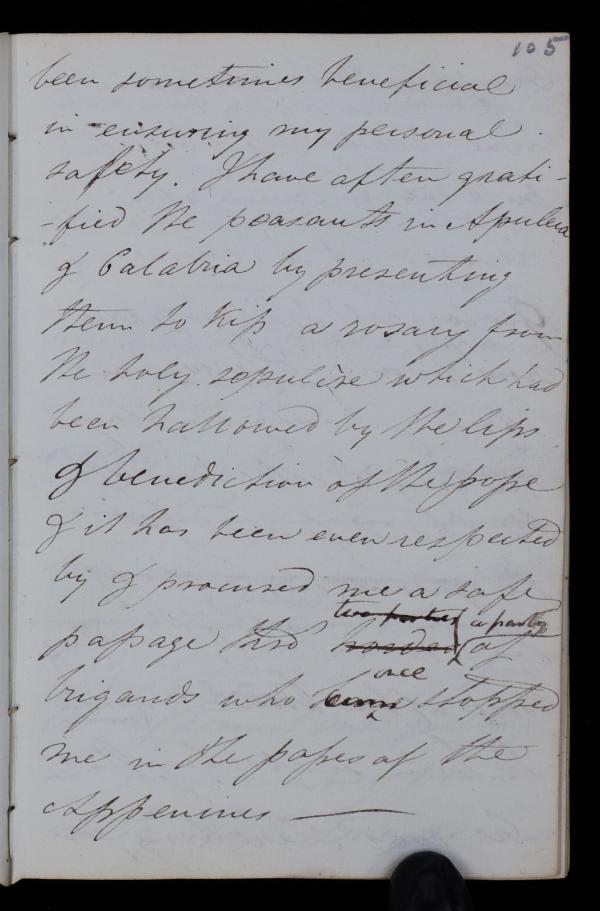 105
been sometimes beneficial
in ensuring my personal
safety. I have often grati-
-fied the peasants in Apulia
& Calabria by presenting
them to kiss a rosary from
the holy sepulcre which had
been hallowed by the lips
& benediction of the pope
& it has been even respected
by & procured me a safe
two parties a party
passage thro' hordes of
once
brigands who stopped
me in the passes of the
Appenines —